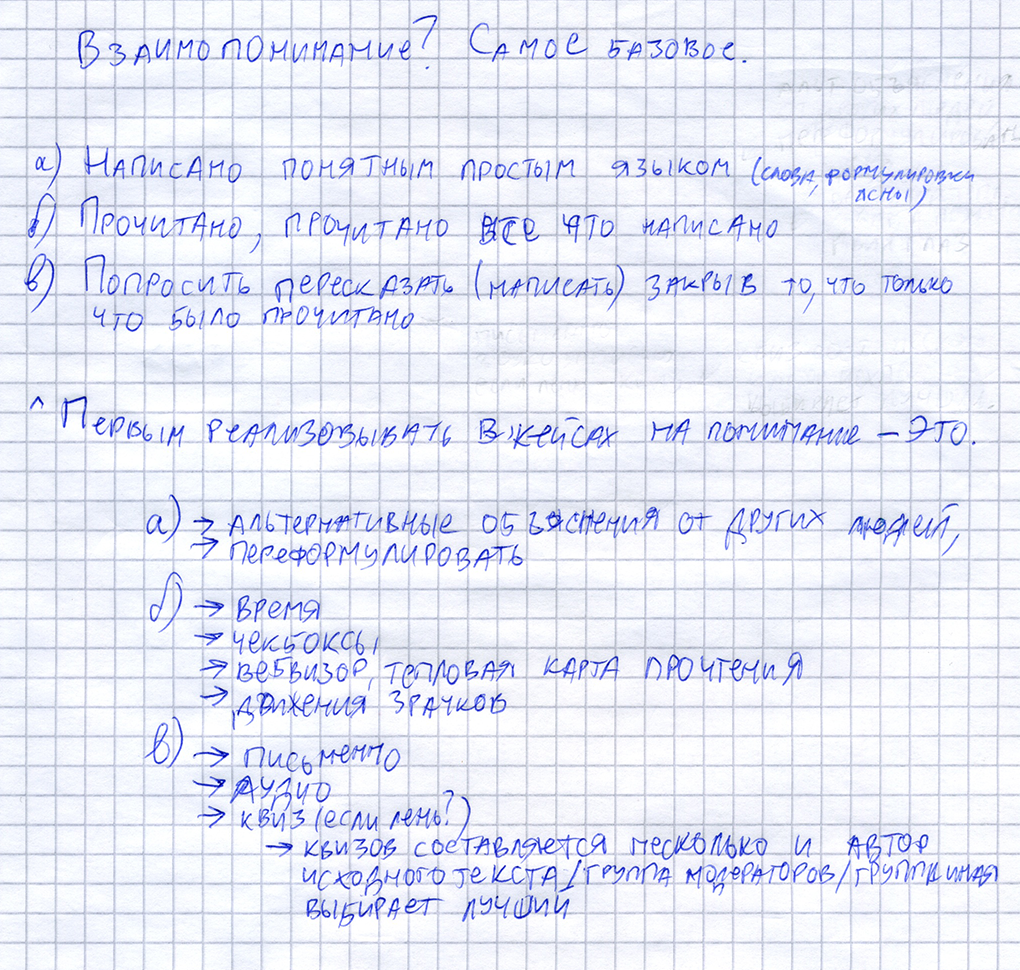 Взаимопонимание? Самое базовое.
а) Написано понятным простым языком (слова, формулировки
ясны)
б) Прочитано, прочитано все что написано
в) Попросить пересказать (написать) закрыв то, что только
что было прочитано
^ Первым реализовывать в кейсах на понимание – это.
а) → альтернативные объяснения от других людей,
→ переформулировать
б) → время
→ чекбоксы
→ вебвизор, тепловая карта прочтения
→ движения зрачков
в) → письменно
→ аудио
→ квиз (если лень?)
→ квизов составляется несколько и автор
исходного текста / группа модераторов / группа иная
выбирает лучший